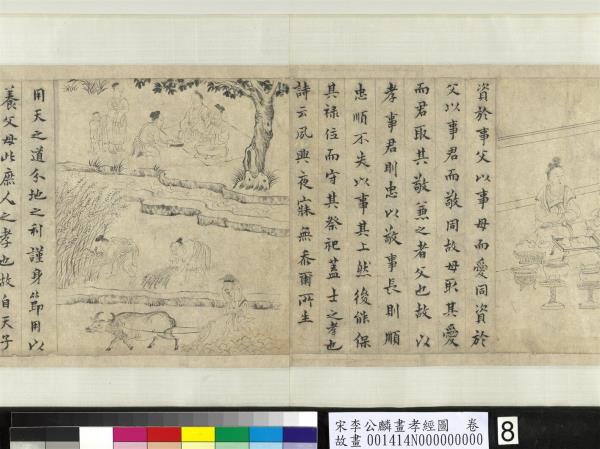 資於事父以事母而愛同資於
父以事君而敬同故母取其愛
而君取其敬兼之者父也故以
孝事君則忠以敬事長則順
忠順不失以事其上然後能保
其祿位而守其祭祀蓋士之孝也
詩云夙興夜寐無忝爾所生
用天之道分地之利謹身節用以
養父母此庶人之孝也故自天子
宋李公麟畫孝經圖 卷
故畫 001414N000000000
8